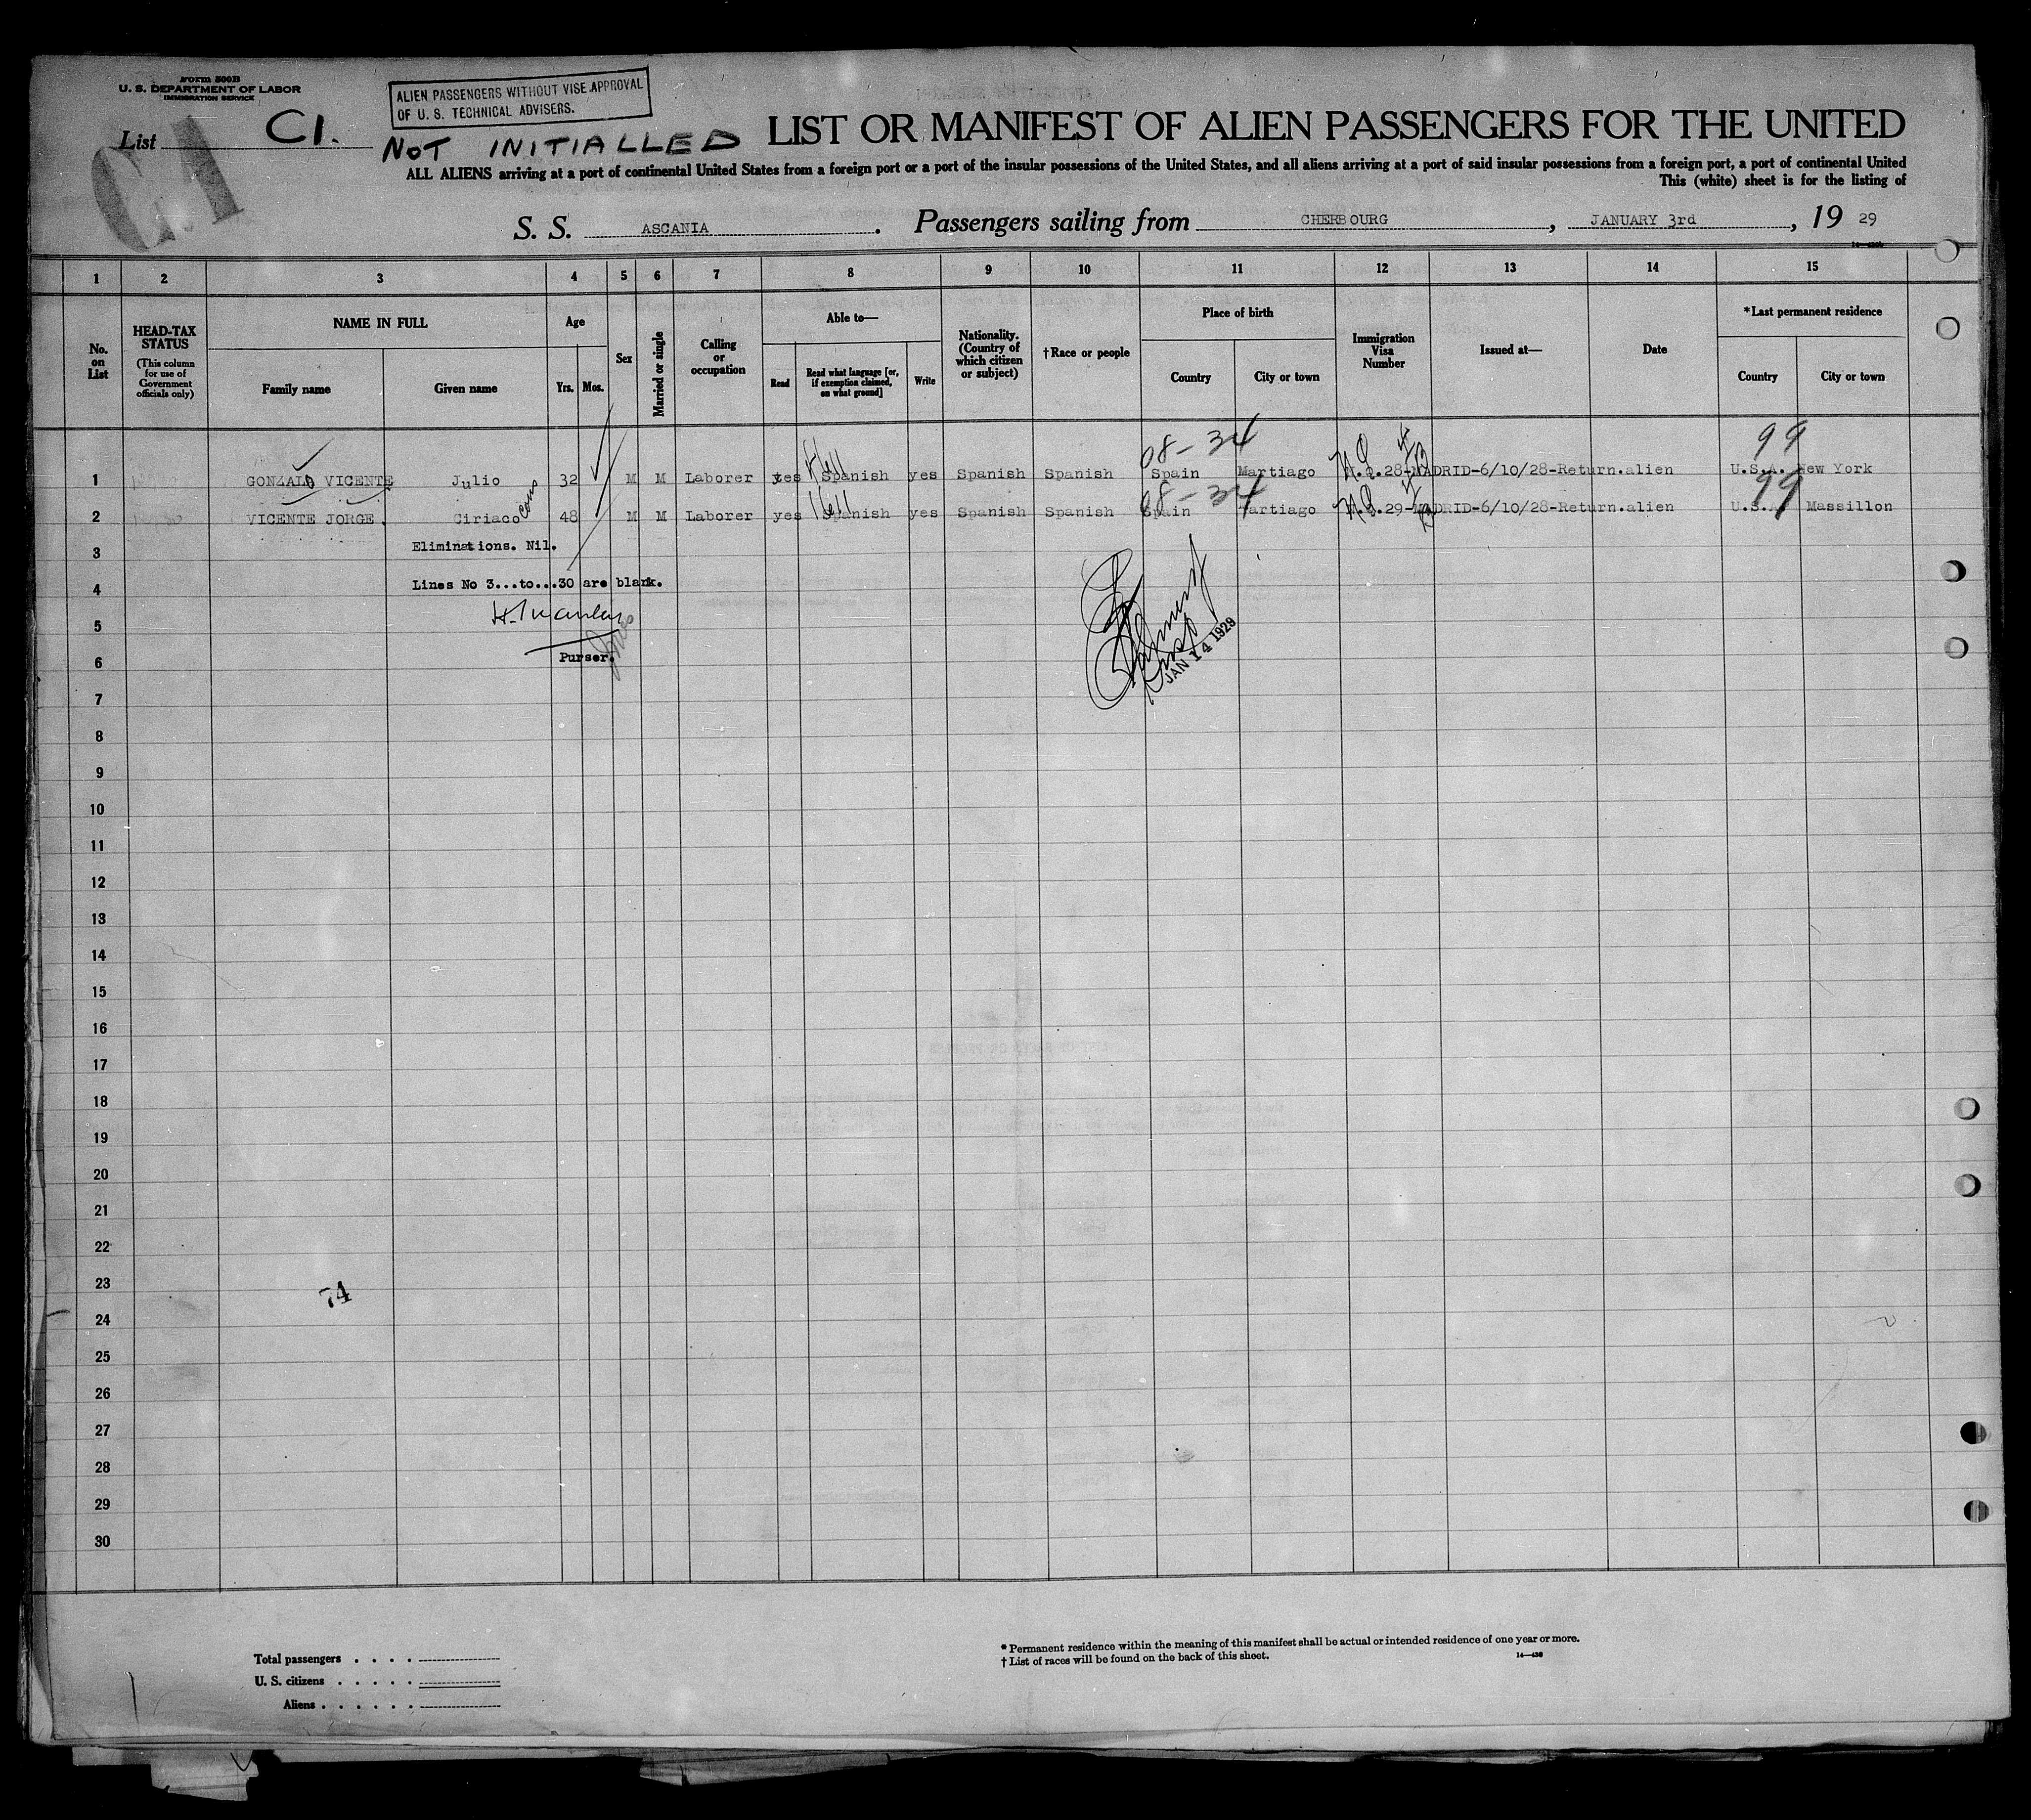 Form 500B
U. S. DEPARTMENT OF LABOR
IMMIGRATION SERVICE
ALIEN PASSENGERS WITHOUT VISE APPROVAL
OF U. S. TECHNICAL ADVISERS.
List C1.
NOT INITIALLED
LIST OR MANIFEST OF ALIEN PASSENGERS FOR THE UNITED
ALL ALIENS arriving at a port of continental United States from a foreign port or a port of the insular possessions of the United States, and all aliens arriving at a port of said insular possessions from a foreign port, a port of continental United
This (white) sheet is for the listing of
S. S. ASCANIA. Passengers sailing from CHERBOURG, JANUARY 3rd, 19 29
1 2 3 4 5 6 7 8 9 10 11 12 13 14 15
No. on List
HEAD-TAX STATUS
(This column for use of Government officials only)
NAME IN FULL
Family name
Given name
Age
Yrs. Mos.
Sex
Married or single
Calling or occupation
Able to—
Read
Read what language [or, if exemption claimed, on what ground]
Write
Nationality. (Country of which citizen or subject)
†Race or people
Place of birth
Country
City or town
Immigration Visa Number
Issued at—
Date
*Last permanent residence
Country
City or town
08-34 99
1 GONZALO VICENTE Julio 32 M M Laborer yes Spanish yes Spanish Spanish Spain Martiago 28-MADRID-6/10/28-Return.alien U.S.A. New York
08-34 99
2 VICENTE JORGE. Ciriaco 48 M M Laborer yes Spanish yes Spanish Spanish Spain Martiago 29-MADRID-6/10/28-Return.alien U.S.A. Massillon
3 Eliminations. Nil.
4 Lines No 3...to...30 are blank.
5
6 Purser.
JAN 14 1929
7
8
9
10
11
12
13
14
15
16
17
18
19
20
21
22
23
74
24
25
26
27
28
29
30
Total passengers . . . .
U. S. citizens . . . . .
Aliens . . . . . .
* Permanent residence within the meaning of this manifest shall be actual or intended residence of one year or more.
† List of races will be found on the back of this sheet.
14—436